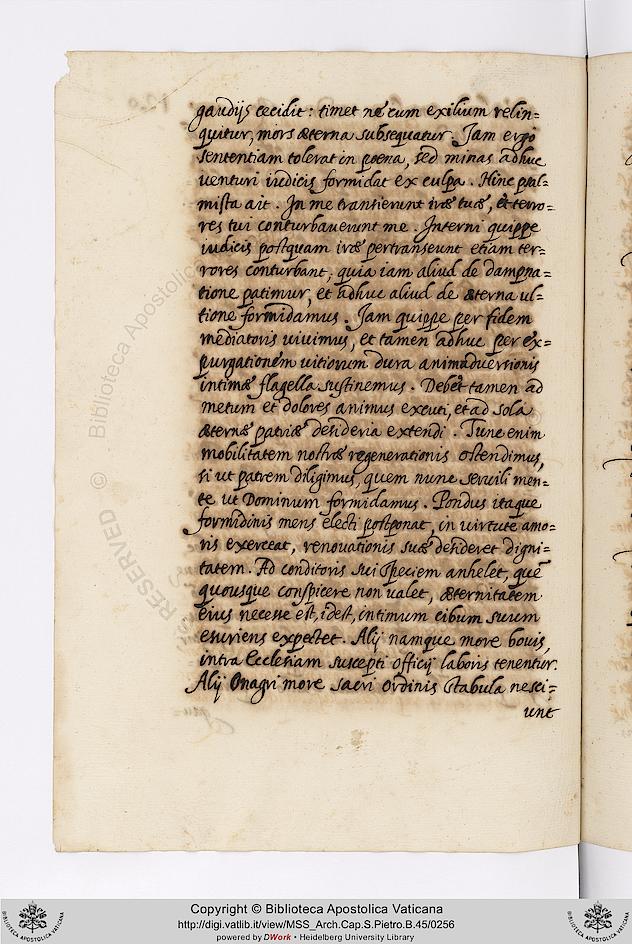 gaudijs cecidit: timet ne cum exilium relin=
quitur, mors æterna subsequatur. Jam ergo
sententiam tolerat in pœna, sed minas adhuc
venturi iudicis formidat ex culpa. Hinc psal=
mista ait. In me transierunt iræ tuæ, et terro=
res tui conturbaverunt me. Interni quippe
iudicis postquam iræ pertranseunt etiam ter=
rores conturbant, quia iam aliud de dampna=
tione patimur, et adhuc aliud de æterna ul=
tione formidamus. Jam quippe per fidem
mediatoris vivimus, et tamen adhuc per ex=
purgationem vitiorum dura animadversionis
intimæ flagella sustinemus. Debet tamen ad
metum et dolores animus excuti, et ad sola
æternæ patriæ desideria extendi. Tunc enim
mobilitatem nostræ regenerationis ostendimus,
si ut patrem diligimus, quem nunc servili men=
te ut Dominum formidamus. Pondus itaque
formidinis mens electi postponat, in virtute amo=
ris exerceat, renovationis suæ desideret digni=
tatem. Ad conditoris sui speciem anhelet, quẽ
quousque conspicere non valet, æternitatem
eius necesse est, idest, intimum cibum suum
esuriens expectet. Alij namque more bovis,
intra Ecclesiam suscepti officij laboris tenentur.
Alij Onagri more sacri ordinis stabula nesci=
unt
© Biblioteca Apostolica
RESERVED
Copyright © Biblioteca Apostolica Vaticana
http://digi.vatlib.it/view/MSS_Arch.Cap.S.Pietro.B.45/0256
powered by DWork • Heidelberg University Library